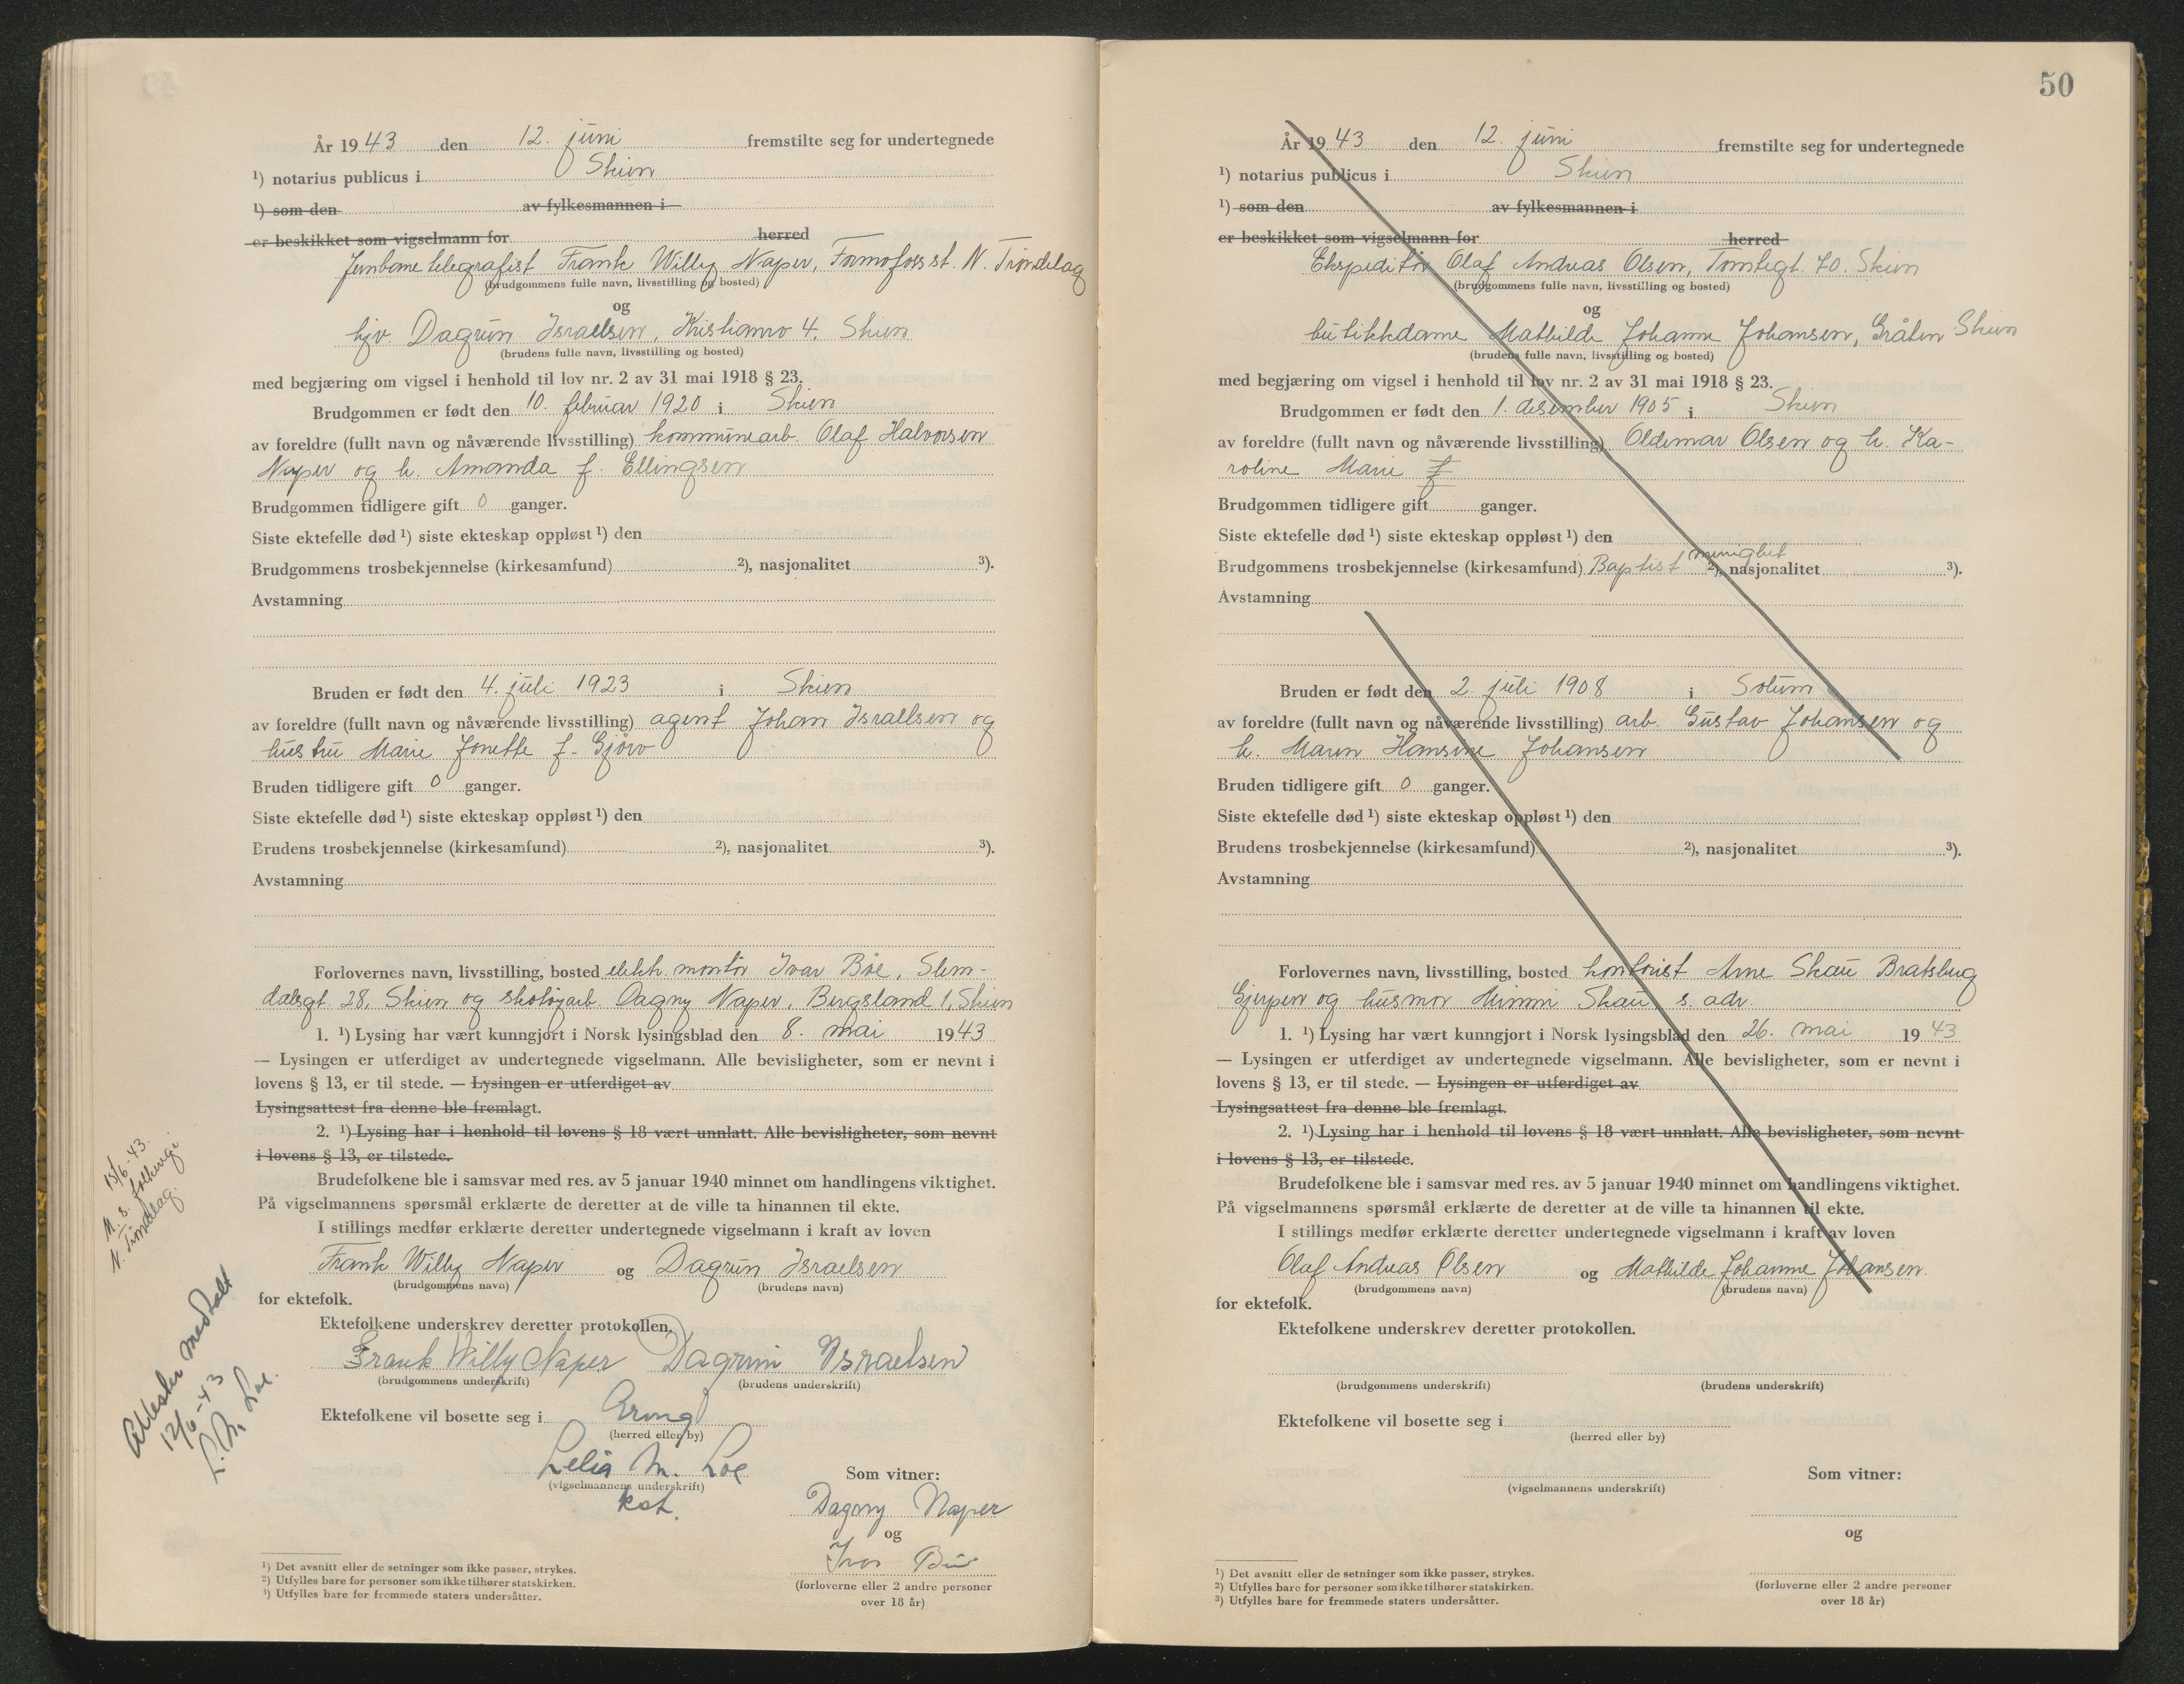 År 1943 den 12. juni fremstilte seg for undertegnede
¹) notarius publicus i Skien
¹) som den av fylkesmannen i
er beskikket som vigselmann for herred
Jernbanetelegrafist Frank Willy Naper, Formofoss st. N. Trøndelag
(brudgommens fulle navn, livsstilling og bosted)
og
hjv. Dagrun Israelsen, Kristianro 4, Skien
(brudens fulle navn, livsstilling og bosted)
med begjæring om vigsel i henhold til lov nr. 2 av 31 mai 1918 § 23.
Brudgommen er født den 10. februar 1920 i Skien
av foreldre (fullt navn og nåværende livsstilling) kommunearb. Olaf Halvorsen
Naper og h. Amanda f. Ellingsen
Brudgommen tidligere gift 0 ganger.
Siste ektefelle død ¹) siste ekteskap oppløst ¹) den
Brudgommens trosbekjennelse (kirkesamfund) ²), nasjonalitet ³).
Avstamning
Bruden er født den 4. juli 1923 i Skien
av foreldre (fullt navn og nåværende livsstilling) agent Johan Israelsen og
hustru Marie Jonette f. Gjørv
Bruden tidligere gift 0 ganger.
Siste ektefelle død ¹) siste ekteskap oppløst ¹) den
Brudens trosbekjennelse (kirkesamfund) ²), nasjonalitet ³).
Avstamning
Forlovernes navn, livsstilling, bosted elektr. montør Ivar Bøe, Slem-
dalsgt. 28, Skien og skotøyarb. Dagny Naper, Bergsland 1, Skien
1. ¹) Lysing har vært kunngjort i Norsk lysingsblad den 8. mai 1943
— Lysingen er utferdiget av undertegnede vigselmann. Alle bevisligheter, som er nevnt i
lovens § 13, er til stede. — Lysingen er utferdiget av
Lysingsattest fra denne ble fremlagt.
2. ¹) Lysing har i henhold til lovens § 18 vært unnlatt. Alle bevisligheter, som nevnt
i lovens § 13, er tilstede.
Brudefolkene ble i samsvar med res. av 5 januar 1940 minnet om handlingens viktighet.
På vigselmannens spørsmål erklærte de deretter at de ville ta hinannen til ekte.
I stillings medfør erklærte deretter undertegnede vigselmann i kraft av loven
Frank Willy Naper og Dagrun Israelsen
(brudgommens navn) (brudens navn)
for ektefolk.
Ektefolkene underskrev deretter protokollen.
Frank Willy Naper Dagrun Israelsen
(brudgommens underskrift) (brudens underskrift)
Ektefolkene vil bosette seg i Grong
(herred eller by)
Lelia M. Loe
(vigselmannens underskrift)
kst.
Som vitner:
Dagny Naper
og
Ivar Bøe
(forloverne eller 2 andre personer
over 18 år)
15/6-43.
N. Trøndelag.
Attester meddelt
12/6-43
L. M. Loe.
¹) Det avsnitt eller de setninger som ikke passer, strykes.
²) Utfylles bare for personer som ikke tilhører statskirken.
³) Utfylles bare for fremmede staters undersåtter.
50
År 1943 den 12. juni fremstilte seg for undertegnede
¹) notarius publicus i Skien
¹) som den av fylkesmannen i
er beskikket som vigselmann for herred
Ekspeditør Olaf Andreas Olsen, Tomtegt. 70. Skien
(brudgommens fulle navn, livsstilling og bosted)
og
butikkdame Mathilde Johanne Johansen, Gråten Skien
(brudens fulle navn, livsstilling og bosted)
med begjæring om vigsel i henhold til lov nr. 2 av 31 mai 1918 § 23.
Brudgommen er født den 1. desember 1905 i Skien
av foreldre (fullt navn og nåværende livsstilling) Oldemar Olsen og h. Ka-
roline Marie f
Brudgommen tidligere gift ganger.
Siste ektefelle død ¹) siste ekteskap oppløst ¹) den
Brudgommens trosbekjennelse (kirkesamfund) Baptist menighet ²), nasjonalitet ³).
Avstamning
Bruden er født den 2. juli 1908 i Solum
av foreldre (fullt navn og nåværende livsstilling) arb. Gustav Johansen og
h. Maren Hansine Johansen
Bruden tidligere gift 0 ganger.
Siste ektefelle død ¹) siste ekteskap oppløst ¹) den
Brudens trosbekjennelse (kirkesamfund) ²), nasjonalitet ³).
Avstamning
Forlovernes navn, livsstilling, bosted kontorist Arne Skau Bratsberg
Gjerpen og husmor Mimmi Skau s. adr.
1. ¹) Lysing har vært kunngjort i Norsk lysingsblad den 26. mai 1943
— Lysingen er utferdiget av undertegnede vigselmann. Alle bevisligheter, som er nevnt i
lovens § 13, er til stede. — Lysingen er utferdiget av
Lysingsattest fra denne ble fremlagt.
2. ¹) Lysing har i henhold til lovens § 18 vært unnlatt. Alle bevisligheter, som nevnt
i lovens § 13, er tilstede.
Brudefolkene ble i samsvar med res. av 5 januar 1940 minnet om handlingens viktighet.
På vigselmannens spørsmål erklærte de deretter at de ville ta hinannen til ekte.
I stillings medfør erklærte deretter undertegnede vigselmann i kraft av loven
Olaf Andreas Olsen og Mathilde Johanne Johansen.
(brudgommens navn) (brudens navn)
for ektefolk.
Ektefolkene underskrev deretter protokollen.
(brudgommens underskrift) (brudens underskrift)
Ektefolkene vil bosette seg i
(herred eller by)
(vigselmannens underskrift)
Som vitner:
og
(forloverne eller 2 andre personer
over 18 år)
¹) Det avsnitt eller de setninger som ikke passer, strykes.
²) Utfylles bare for personer som ikke tilhører statskirken.
³) Utfylles bare for fremmede staters undersåtter.